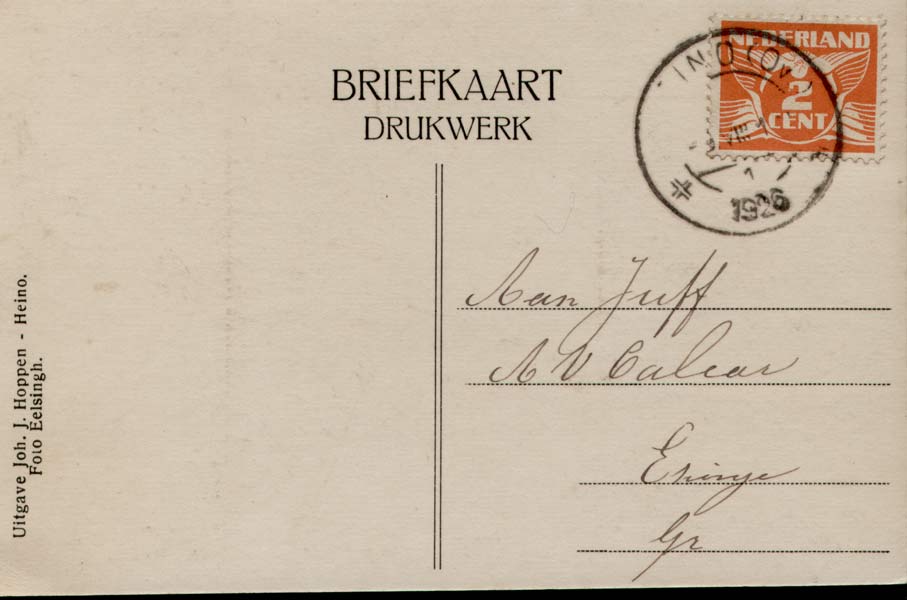 BRIEFKAART
DRUKWERK
NEDERLAND
2
CENT
INO (Ov
VIII
1926
Aan Juff
A V Calcar
Ezinge
Gr
Uitgave Joh. J. Hoppen - Heino.
Foto Eelsingh.